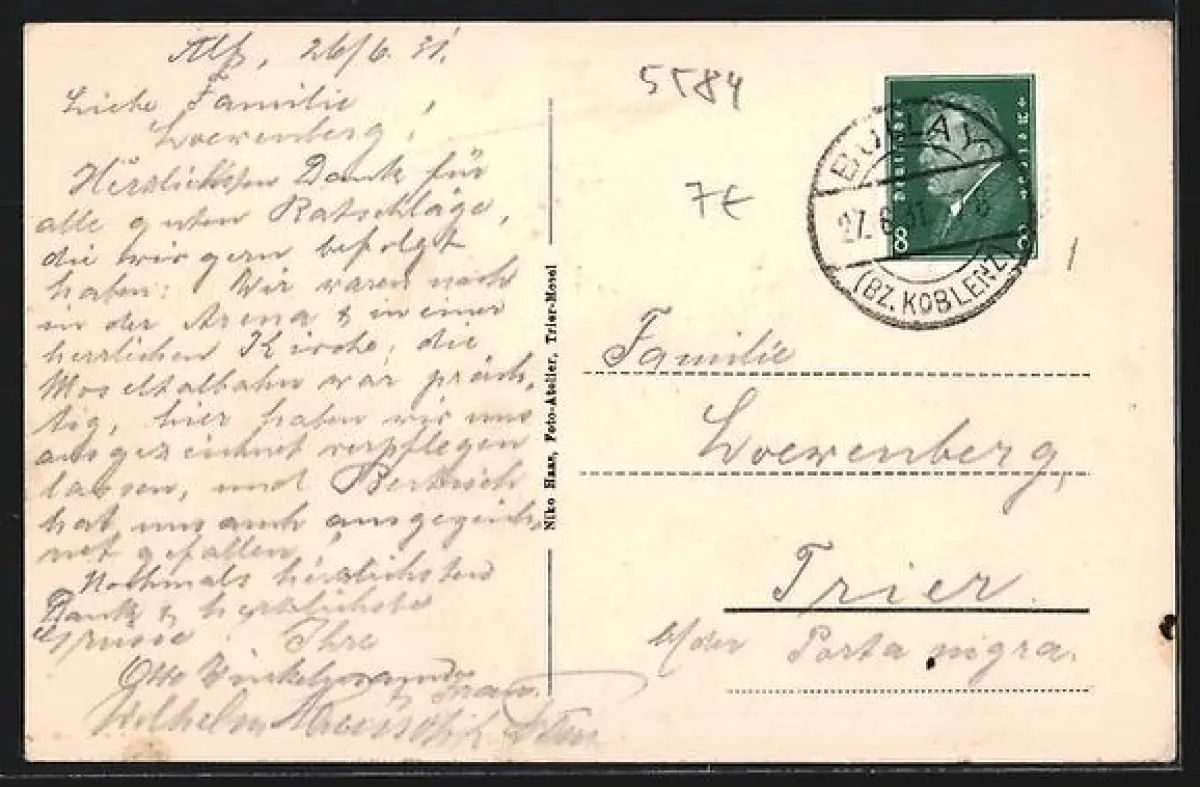 Alf, 26/6. 31.
Liebe Familie
Loewenberg!
Herzlichsten Dank für
alle guten Ratschläge,
die wir gern befolgt
haben: Wir waren noch
in der Arena & in einer
herrlichen Kirche, die
Moseltalbahn war präch-
tig, hier haben wir uns
ausgezeichnet verpflegen
lassen, und Bertrich
hat uns auch ausgezeich-
net gefallen!
Nochmals herzlichsten
Dank & herzlichste
Grüsse. Ihre
Otto
& Frau.
Wilhelm
Niko Haas, Foto-Atelier, Trier-Mosel
5584
7€
BULLAY
27.6.31 7-8
(BZ. KOBLENZ)
Deutsches Reich
8 8
Familie
Loewenberg,
Trier.
a/der Porta nigra.